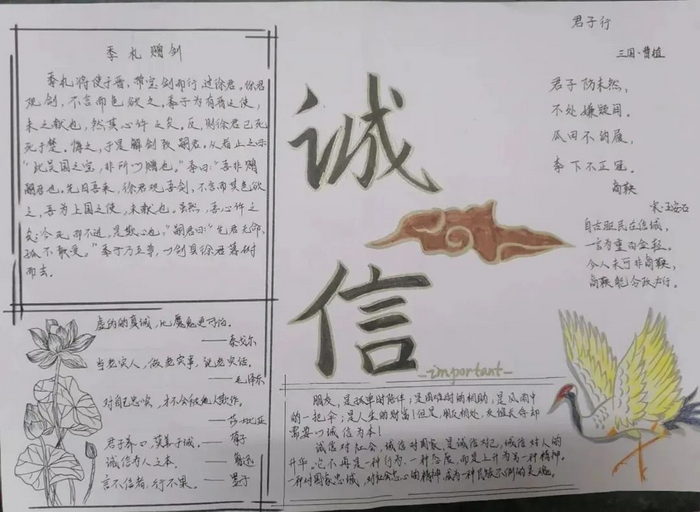 季札赠剑
季札将使于晋，带宝剑而行，过徐君，徐君
观剑，不言而色欲之，季子为有晋之使，
未之献也，然其心许之矣，反，则徐君已死
死于楚。悔之，于是解剑致嗣君，从者止之曰
“此吴国之宝，非所以赠也。”季曰：“吾非赠
嗣君也，先日吾来，徐君观吾剑，不言而其色欲
之，吾为上国之使，未献也。虽然，吾心许之
矣。今死而不进，是欺心也。”嗣君曰：“先君无命，
孤不敢受。”季子乃至带剑徐君墓树
而去。
虚伪的真诚，比魔鬼更可怕。
——泰戈尔
当老实人，做老实事，说老实话。
——毛泽东
对自己忠实，才不会被他人欺诈。
——莎士比亚
君子养心，莫善于诚。——荀子
诚信为人之本。——鲁迅
言不信者，行不果。——墨子
诚
信
-important-
朋友，是孤单时的陪伴；是困难时的相助；是风雨中
的一把伞；是人生的财富！但是朋友相处，友谊长存却
需要以诚信为本！
诚信对社会，诚信对国家，是诚信对己，诚信对人的
升华。它不再是一种行为，一种态度，而是上升为另一种精神。
一种对国家忠诚，对社会忠心的精神，成为一种民族不倒的灵魂。
君子行
三国·曹植
君子防未然，
不处嫌疑间。
瓜田不纳履，
李下不正冠。
商鞅
宋·王安石
自古驱民在信诚，
一言为重百金轻。
今人未可非商鞅，
商鞅能令政必行。